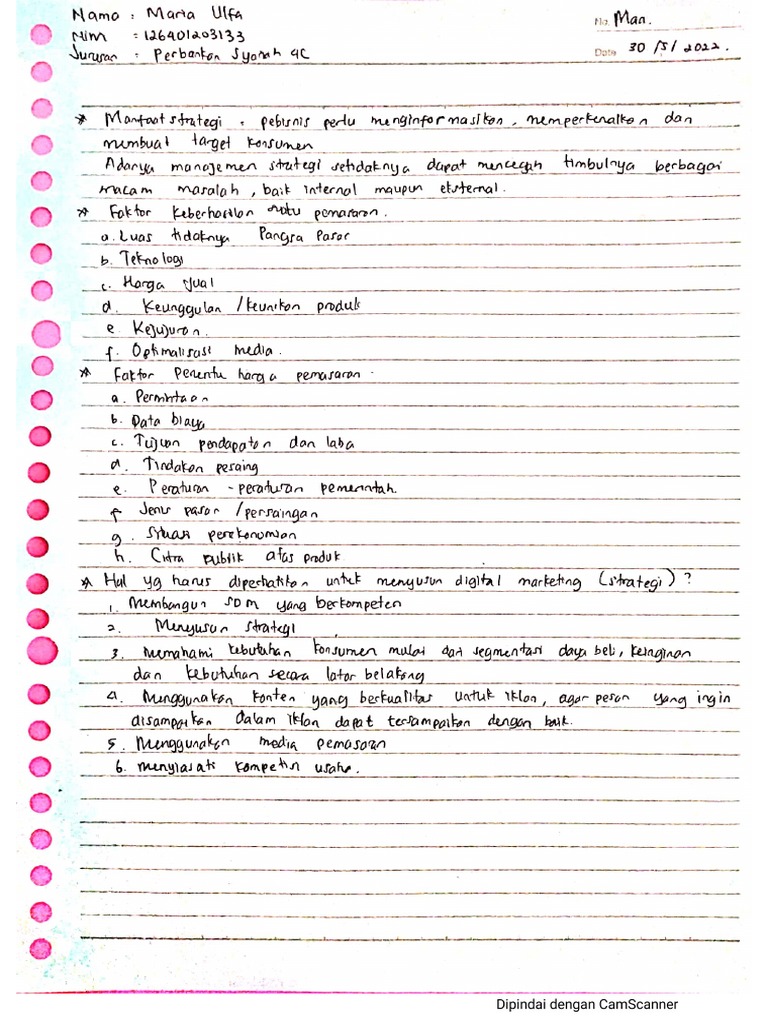 Nama : Maria Ulfa
No. Man.
Nim : 126401203133
Date 30 /5/ 2022.
Jurusan : Perbankan Syariah 4C
* Manfaat strategi : pebisnis perlu menginformasikan, memperkenalkan dan
membuat target konsumen
Adanya manajemen strategi setidaknya dapat mencegah timbulnya berbagai
macam masalah, baik internal maupun eksternal.
* Faktor keberhasilan suatu pemasaran.
a. Luas tidaknya Pangsa Pasar
b. Teknologi
c. Harga Jual
d. Keunggulan /keunikan produk
e. Kejujuran.
f. Optimalisasi media.
* Faktor Penentu harga pemasaran.
a. Permintaan
b. Data biaya
c. Tujuan pendapatan dan laba
d. Tindakan pesaing
e. Peraturan -peraturan pemerintah.
f Jenis pasar /persaingan
g. Situasi perekonomian
h. Citra publik atas produk
* Hal yg harus diperhatikan untuk menyusun digital marketing (strategi) ?
1. Membangun SDM yang berkompeten
2. Menyusun strategi
3. Memahami kebutuhan konsumen mulai dari segmentasi daya beli, keinginan
dan kebutuhan secara latar belakang
4. Menggunakan konten yang berkualitas untuk iklan, agar pesan yang ingin
disampaikan dalam iklan dapat tersampaikan dengan baik.
5. Menggunakan media pemasaran
6. menyiasati kompetisi usaha.
Dipindai dengan CamScanner